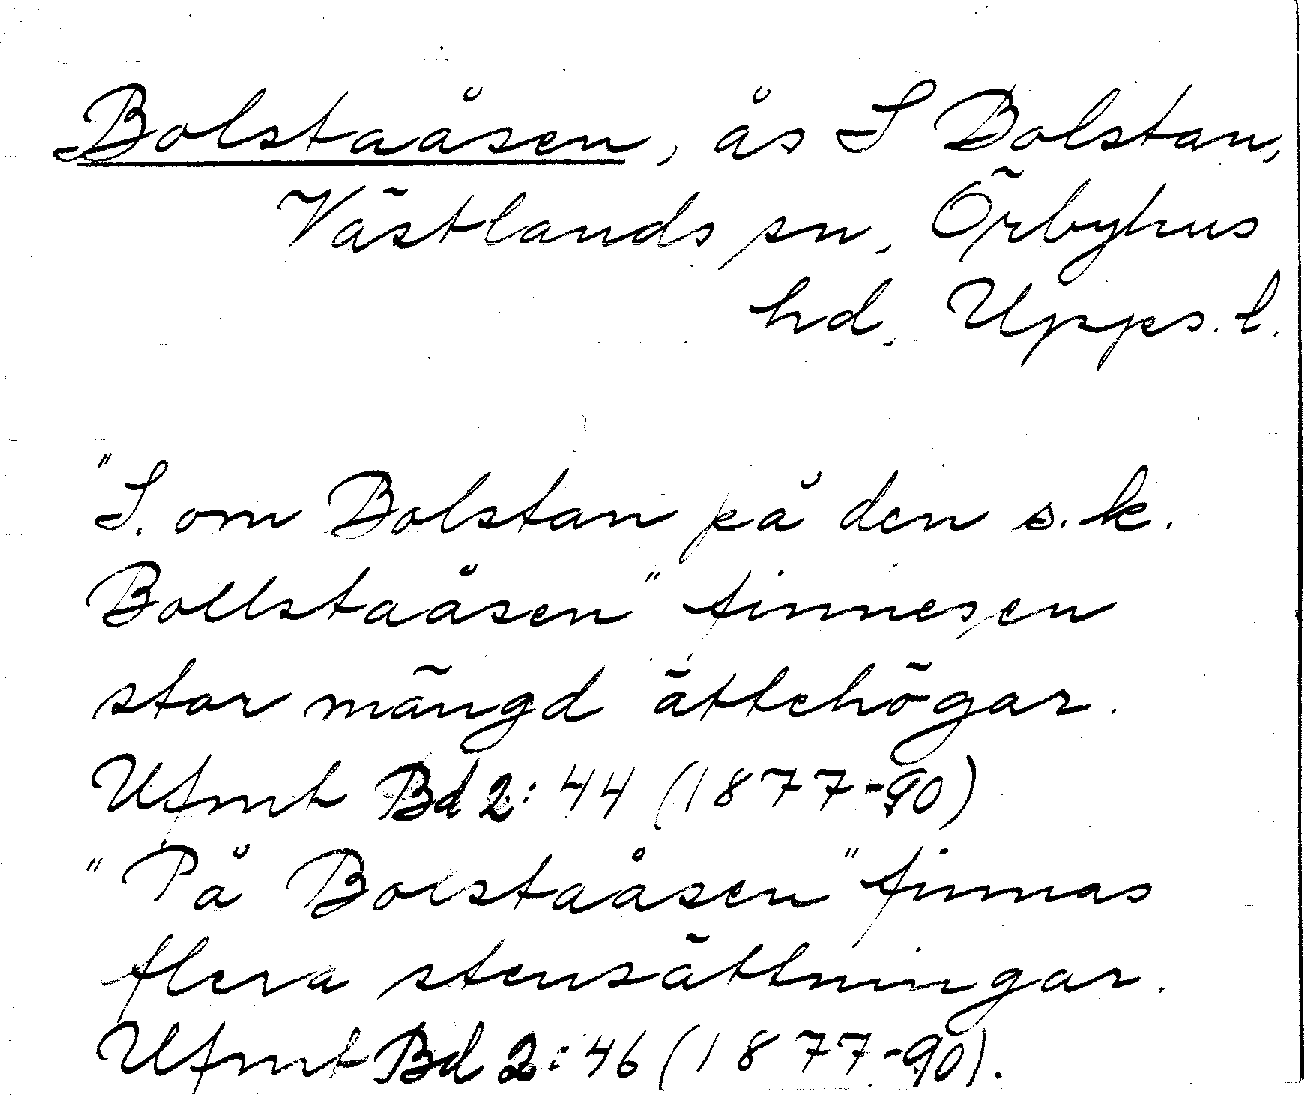 Bolstaåsen, ås S Bolstan,
Västlands sn, Örbyhus
hd, Upps. l.
"S. om Bolstan på den s.k.
Bollstaåsen" finnes en
stor mängd ättehögar.
Ufmt Bd 2:44 (1877-90)
"På Bolstaåsen" finnas
flera stensättningar.
Ufmt Bd 2:46 (1877-90).